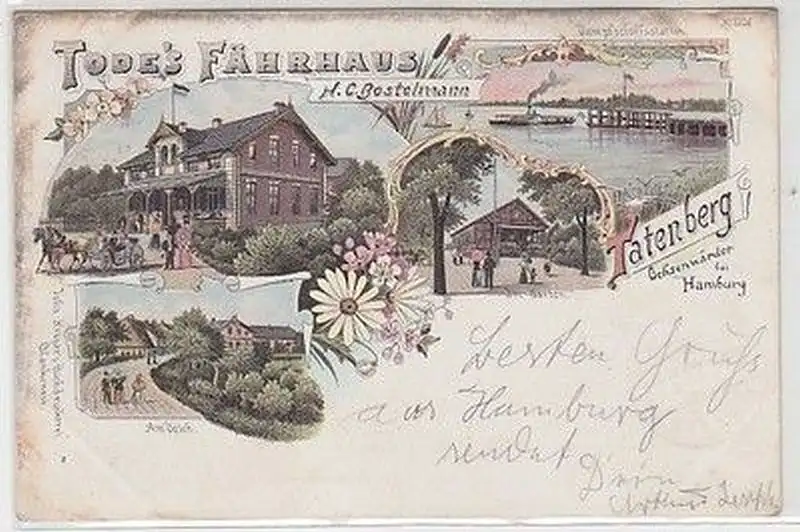 Dampfschiffstation.
TODE'S FÄHRHAUS
H. C. Bostelmann
Tatenberg
Ochsenwärder
bei
Hamburg
Am Deich.
besten Gruß
aus Hamburg
sendet
Dein